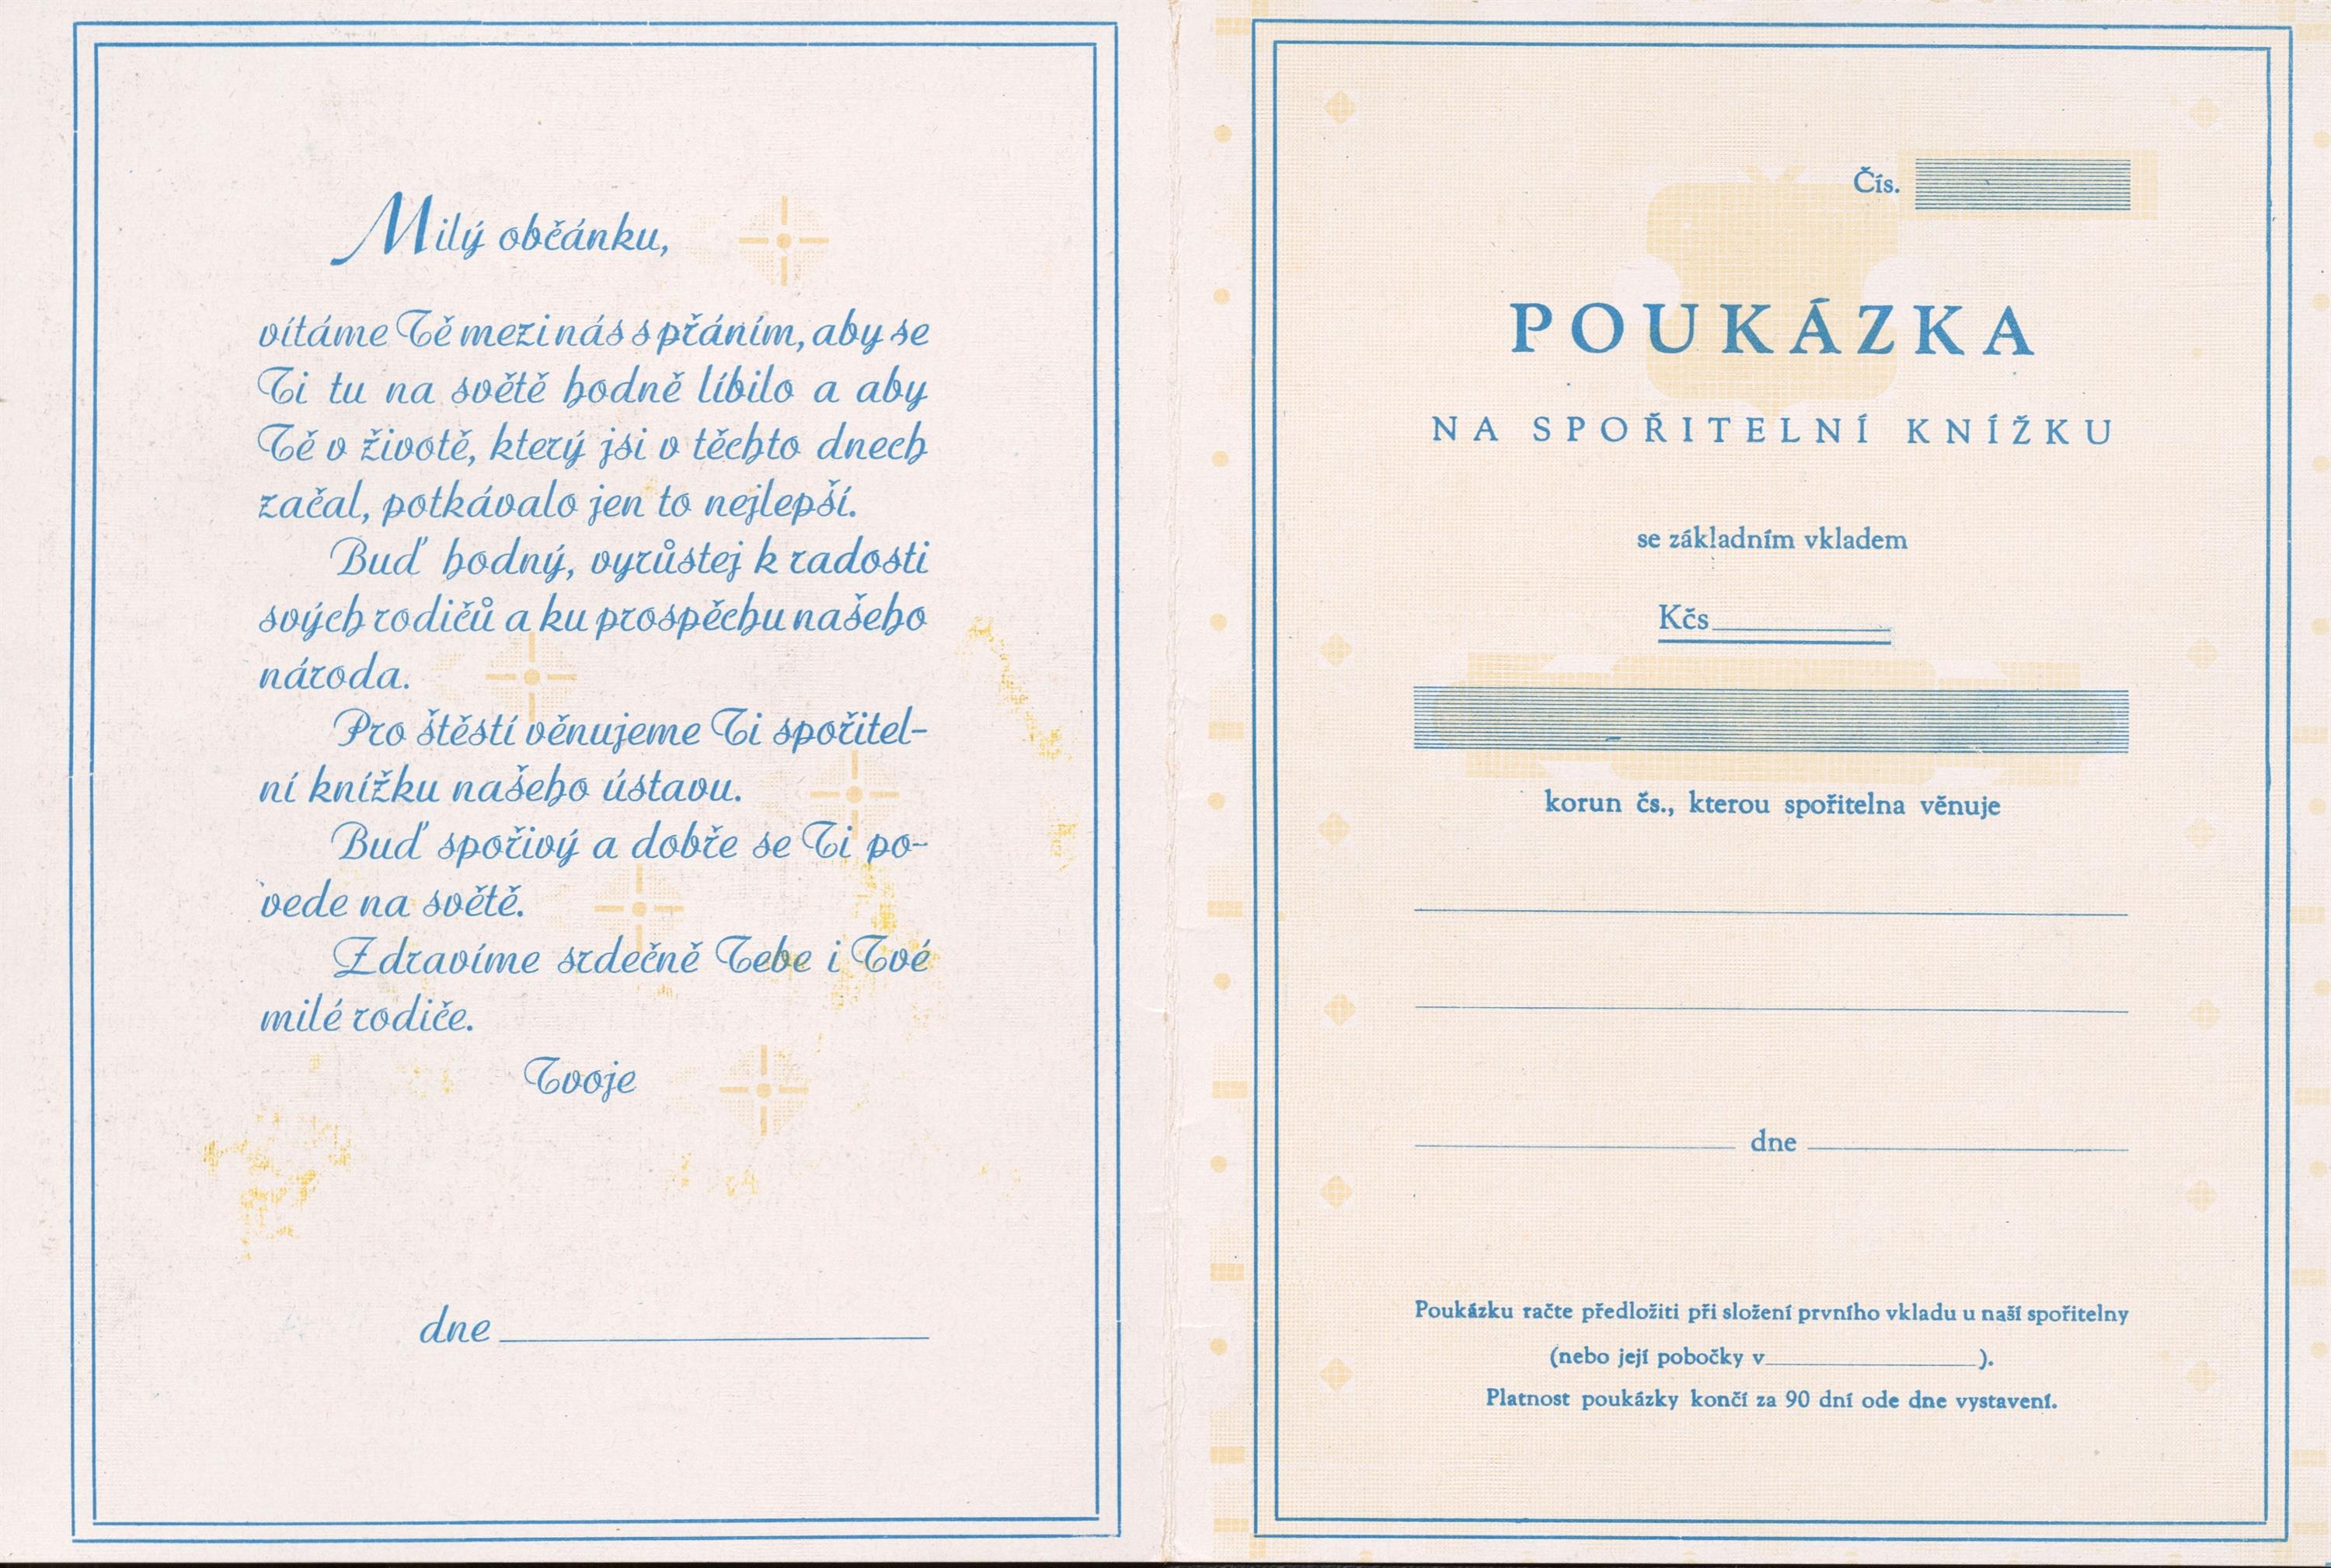 Milý občánku,
vítáme Tě mezi nás s přáním, aby se
Ti tu na světě hodně líbilo a aby
Tě v životě, který jsi v těchto dnech
začal, potkávalo jen to nejlepší.
Buď hodný, vyrůstej k radosti
svých rodičů a ku prospěchu našeho
národa.
Pro štěstí věnujeme Ti spořitel-
ní knížku našeho ústavu.
Buď spořivý a dobře se Ti po-
vede na světě.
Zdravíme srdečně Tebe i Tvé
milé rodiče.
Tvoje
dne
Čís.
POUKÁZKA
NA SPOŘITELNÍ KNÍŽKU
se základním vkladem
Kčs
korun čs., kterou spořitelna věnuje
dne
Poukázku račte předložiti při složení prvního vkladu u naší spořitelny
(nebo její pobočky v ).
Platnost poukázky končí za 90 dní ode dne vystavení.